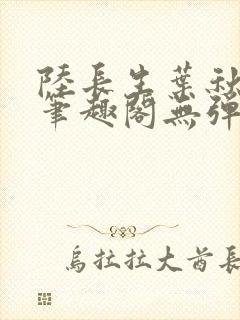 陸長生葉秋
筆趣閣無彈
烏拉拉大酋長